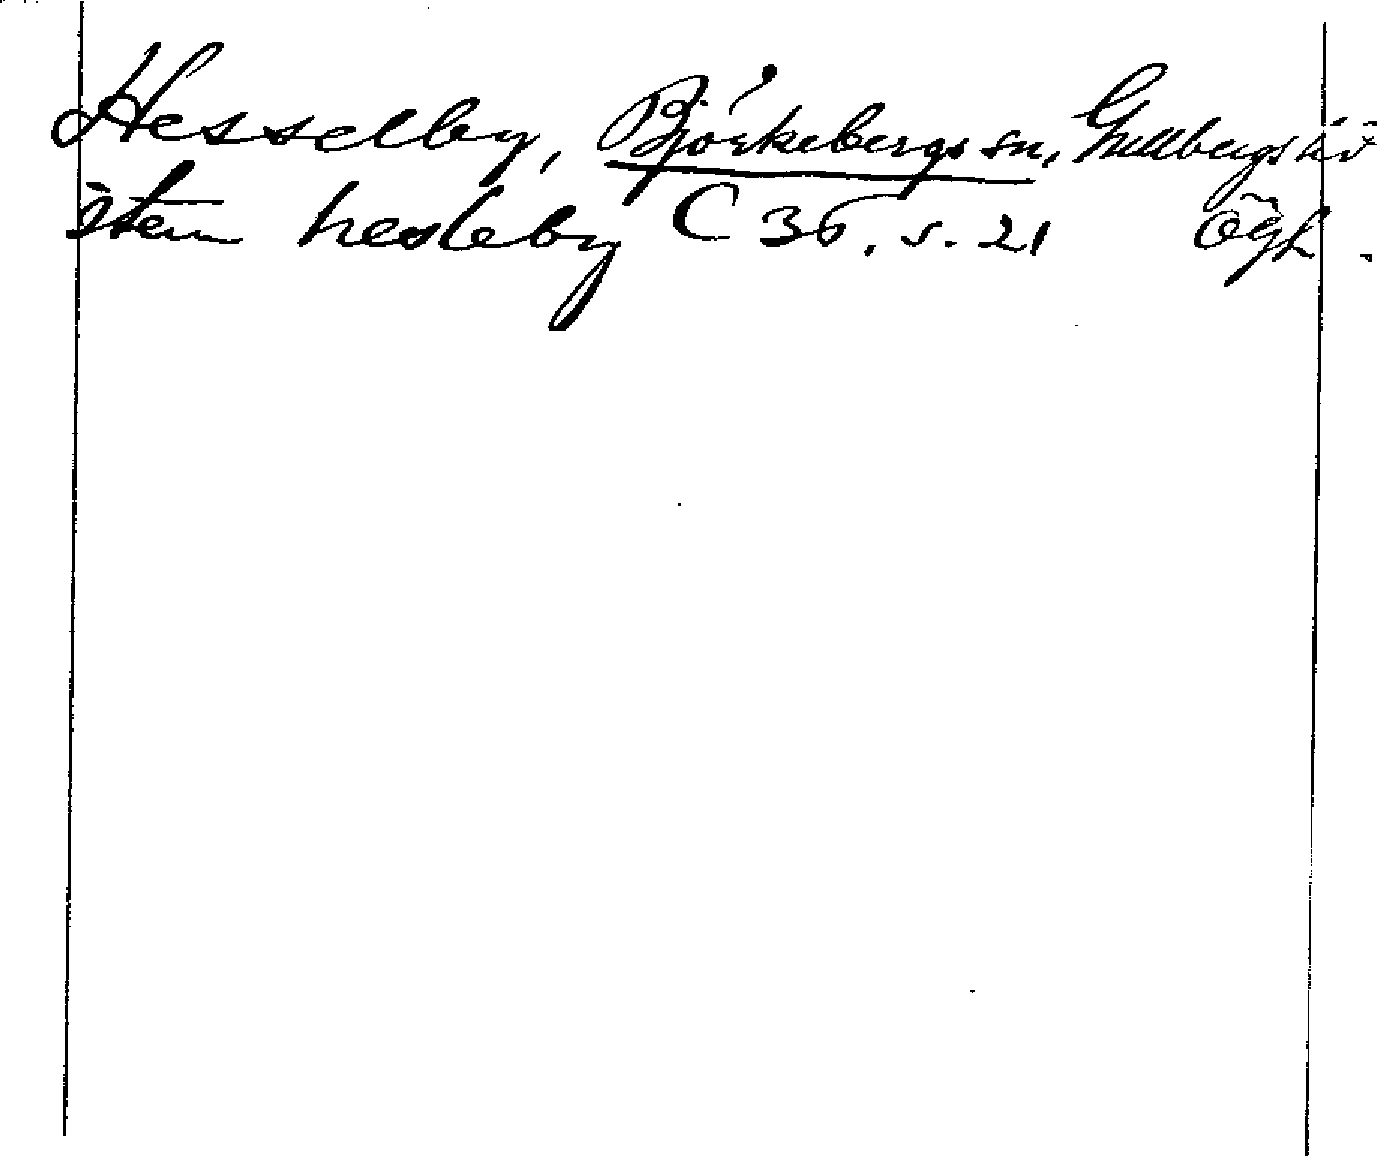 Hesselby, Björkebergs sn, Gullbergs hd
ƶtem hesleby C 36. s. 21 Ögl.